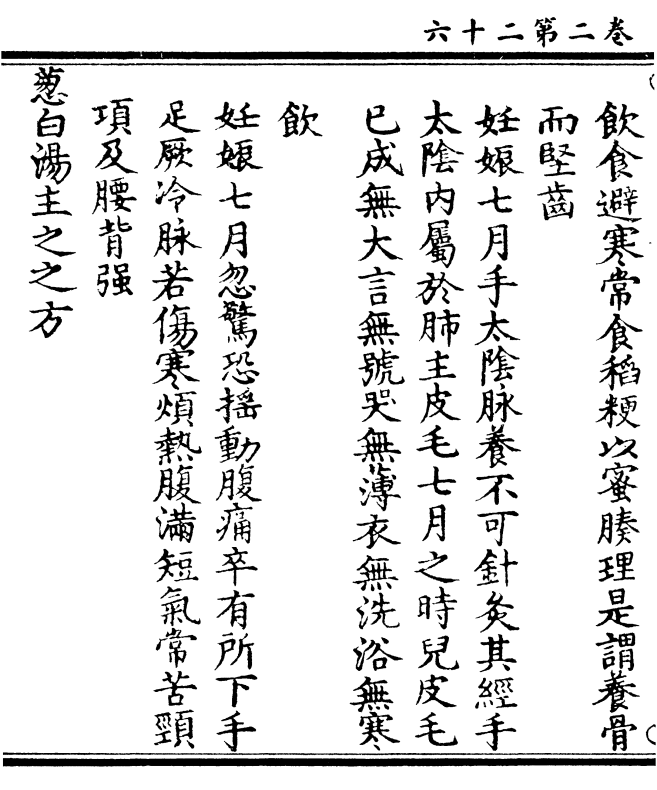 六十二第二卷
飲食避寒常食稻粳以蜜腠理是謂養骨
而堅齒
妊娠七月手太陰脉養不可針灸其經手
太陰内屬於肺主皮毛七月之時兒皮毛
已成無大言無號哭無薄衣無洗浴無寒
飲
妊娠七月忽驚恐揺動腹痛卒有所下手
足厥冷脉若傷寒煩熱腹滿短氣常苦頸
項及腰背强
葱白湯主之之方